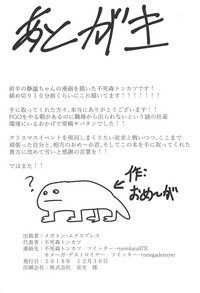 あとがき
前半の静謐ちゃんの漫画を描いた不死森トンカツです！
締め切り10分前くらいにこれ描いてます！！！！！！！
手に取ってくれた方々、本当にありがとうございます！！
FGOをやる暇があるのに職場から出られないという謎の社畜
環境にいるおかげで原稿ヤバタンでした！！
クリスマスイベントを周回しまくりたい欲求と戦いつつ、ここまで
頑張った自分と、相方のおめーが氏、そしてこの本を手に取ってくれた
貴方に改めて労いと感謝の言葉を！！
ではまた！！
作：
おめーが
出版者：メガトン・エクスプレス
代表者：不死森トンカツ
連絡先：不死森トンカツ　ツイッター
オメーガ・デストロイヤー　ツイッター
発行日：2018年　12月30日
印刷会社：株式会社　栄光　様